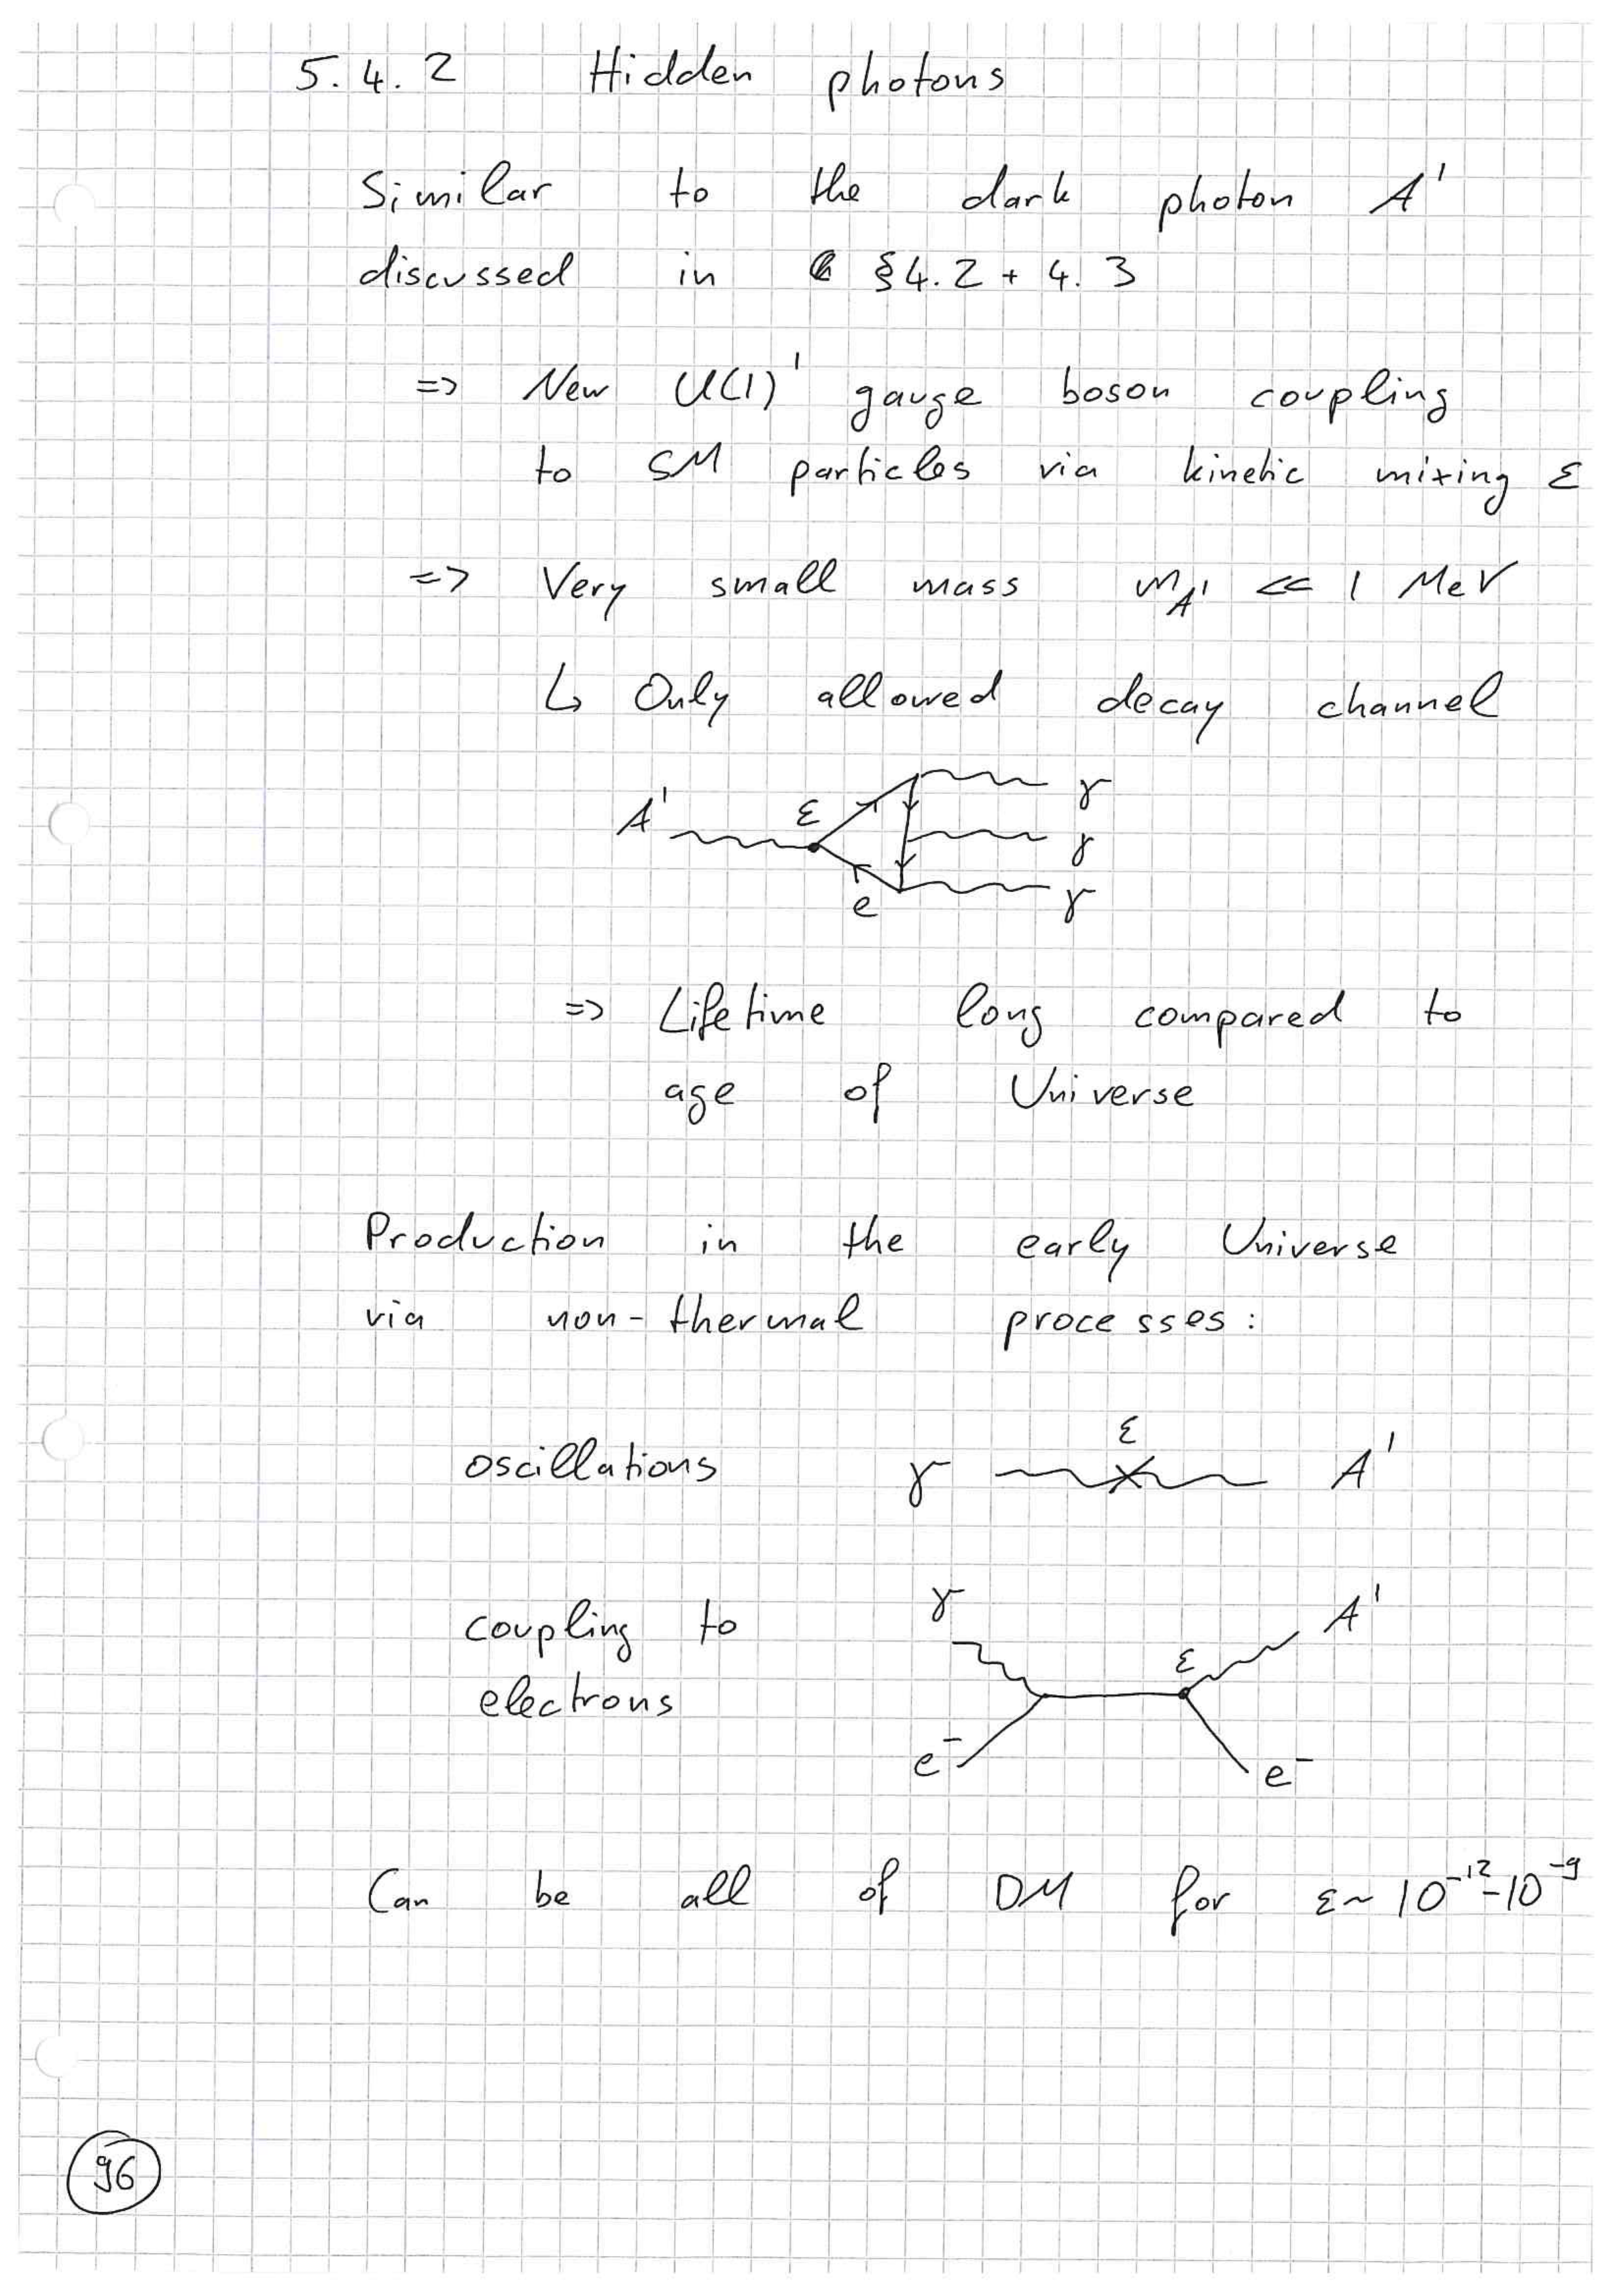 5.4.2 Hidden photons
Similar to the dark photon A'
discussed in §4.2 + 4.3
=> New U(1)' gauge boson coupling
to SM particles via kinetic mixing ε
=> Very small mass m_A' << 1 MeV
↳ Only allowed decay channel
A' ε γ
γ
e γ
=> Lifetime long compared to
age of Universe
Production in the early Universe
via non-thermal processes:
ε
oscillations γ A'
γ A'
coupling to ε
electrons
e⁻ e⁻
Can be all of DM for ε ~ 10⁻¹²-10⁻⁹
96